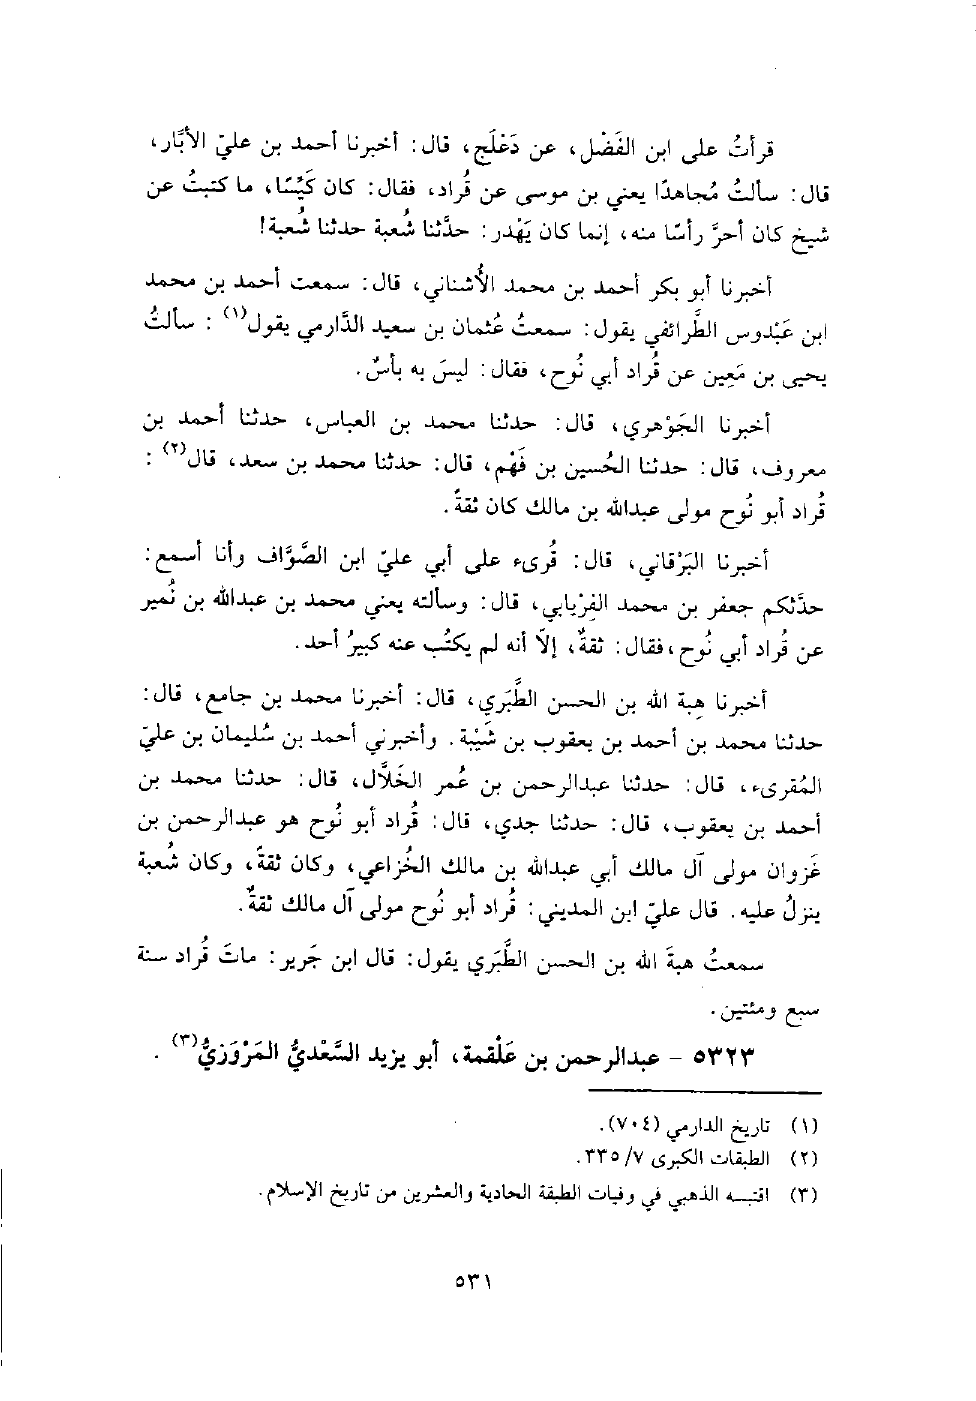 قرأتُ على ابن الفَضْل، عن دَعْلَج، قال: أخبرنا أحمد بن عليّ الأبَّار،
قال: سألتُ مُجاهدًا يعني بن موسى عن قُراد، فقال: كان كَيِّسًا، ما كتبتُ عن
شيخ كان أحرَّ رأسًا منه، إنما كان يَهْدر: حدَّثنا شُعبة حدثنا شُعبة!
أخبرنا أبو بكر أحمد بن محمد الأُشناني، قال: سمعت أحمد بن محمد
ابن عَبْدوس الطَّرائفي يقول: سمعتُ عُثمان بن سعيد الدَّارمي يقول(١): سألتُ
يحيى بن مَعِين عن قُراد أبي نُوح، فقال: ليسَ به بأسٌ.
أخبرنا الجَوْهري، قال: حدثنا محمد بن العباس، حدثنا أحمد بن
معروف، قال: حدثنا الحُسين بن فَهْم، قال: حدثنا محمد بن سعد، قال(٢):
قُراد أبو نُوح مولى عبدالله بن مالك كان ثقةً.
أخبرنا البَرْقاني، قال: قُرىء على أبي عليّ ابن الصَّوَّاف وأنا أسمع:
حدَّثكم جعفر بن محمد الفِرْيابي، قال: وسألته يعني محمد بن عبدالله بن نُمير
عن قُراد أبي نُوح، فقال: ثقةٌ، إلّا أنه لم يكتُب عنه كبيرُ أحد.
أخبرنا هِبة الله بن الحسن الطَّبَري، قال: أخبرنا محمد بن جامع، قال:
حدثنا محمد بن أحمد بن يعقوب بن شَيْبة. وأخبرني أحمد بن سُليمان بن عليّ
المُقرىء، قال: حدثنا عبدالرحمن بن عُمر الخَلَّال، قال: حدثنا محمد بن
أحمد بن يعقوب، قال: حدثنا جدي، قال: قُراد أبو نُوح هو عبدالرحمن بن
غَزوان مولى آل مالك أبي عبدالله بن مالك الخُزاعي، وكان ثقةً، وكان شُعبة
ينزلُ عليه. قال عليّ ابن المديني: قُراد أبو نُوح مولى آل مالك ثقةٌ.
سمعتُ هبةَ الله بن الحسن الطَّبَري يقول: قال ابن جَرير: ماتَ قُراد سنة
سبع ومئتين.
٥٣٢٣ – عبدالرحمن بن عَلْقمة، أبو يزيد السَّعْديُّ المَرْوَزيُّ(٣).
(١) تاريخ الدارمي (٧٠٤).
(٢) الطبقات الكبرى ٧/ ٣٣٥.
(٣) اقتبسه الذهبي في وفيات الطبقة الحادية والعشرين من تاريخ الإسلام.
٥٣١